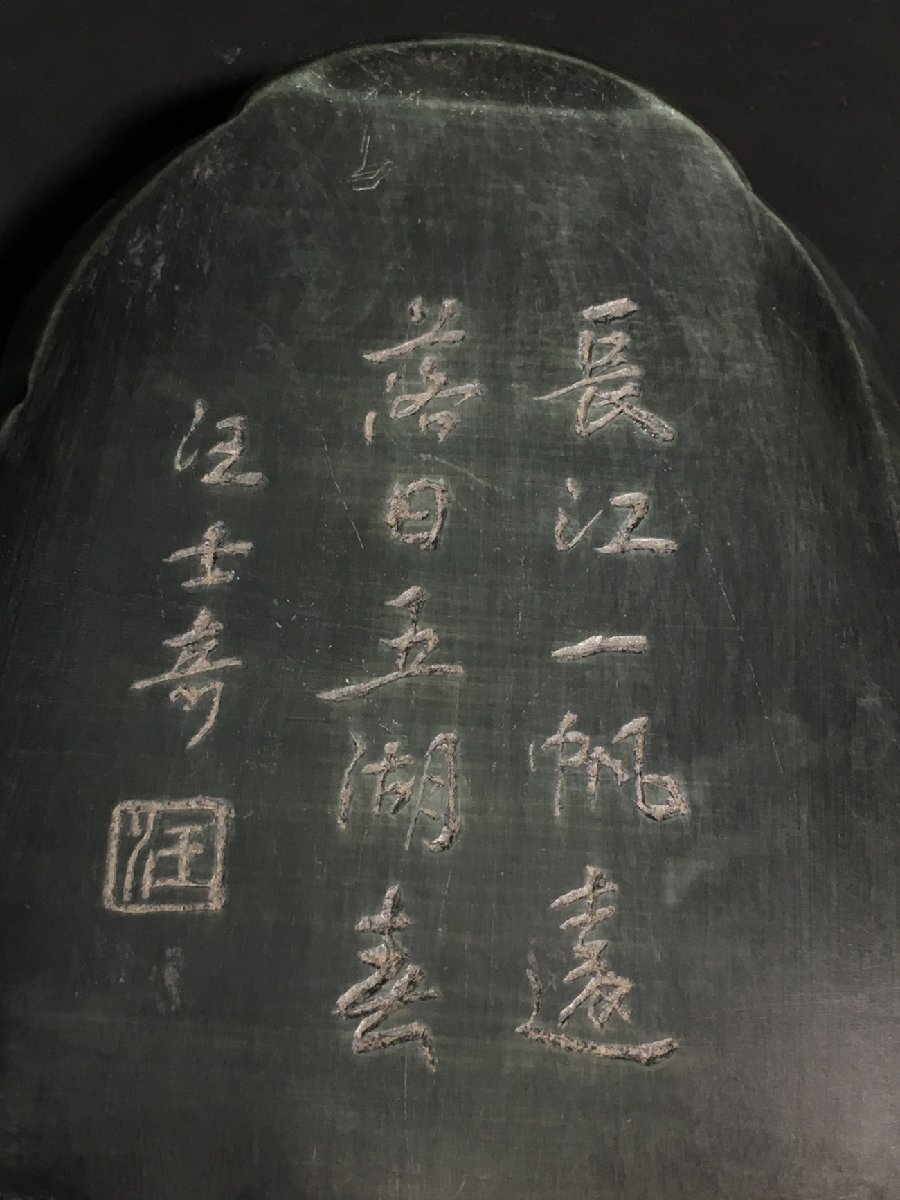 長江一帆遠
落日五湖春
汪士奇
汪